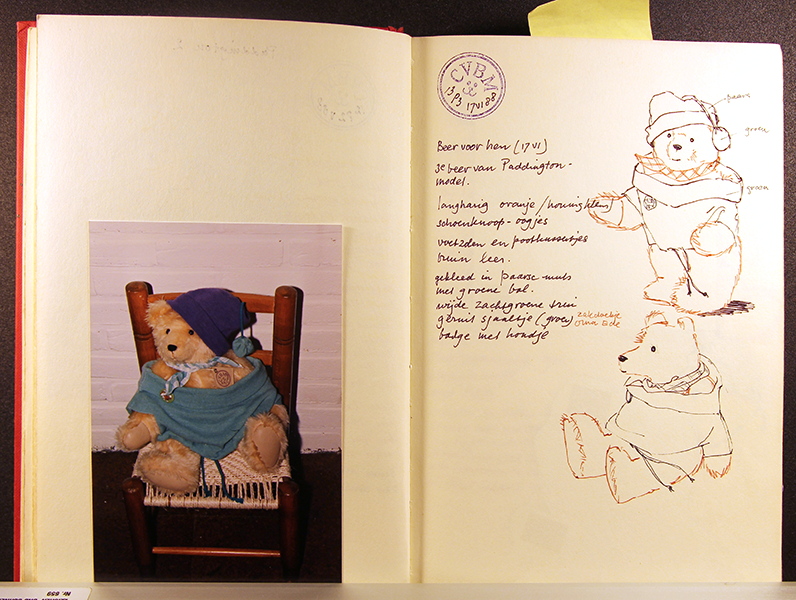 CVBM
1393 17 VI 88
paars
groen
groen
Beer voor hen (17 VI)
3e beer van Paddington-
model.
langharig oranje/honingkleur
schoenknoop-oogjes
voetzolen en pootkussentjes
bruin leer.
gekleed in paarse muts
met groene bal.
wijde zachtgroene trui
geruit sjaaltje (groen) zakdoekje
oma Ede
badge met hondje
Nr. 659